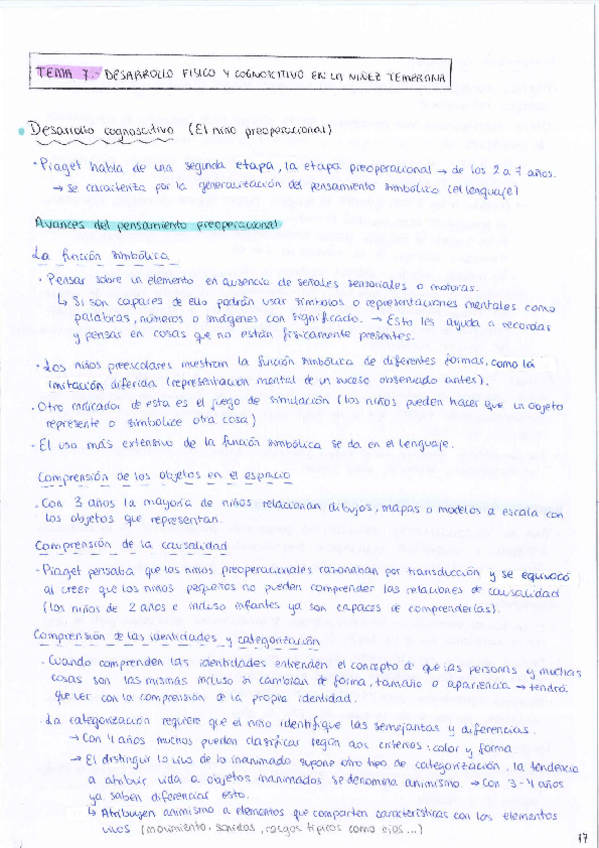 TEMA 7.- DESARROLLO FISICO Y COGNOSCITIVO EN LA NIÑEZ TEMPRANA
Desarrollo cognoscitivo (El niño preoperacional)
· Piaget habla de una segunda etapa, la etapa preoperacional → de los 2 a 7 años.
→ se caracteriza por la generalización del pensamiento simbólico (el lenguaje)
Avances del pensamiento preoperacional
La función simbólica
· Pensar sobre un elemento en ausencia de señales sensoriales o motoras.
↳ Si son capaces de ello podrán usar símbolos o representaciones mentales como
palabras, números o imágenes con significado. → Esto les ayuda a recordar
y pensar en cosas que no están físicamente presentes.
· Los niños preescolares muestran la función simbólica de diferentes formas, como la
imitación diferida (representación mental de un suceso observado antes).
· Otro indicador de esta es el juego de simulación (los niños pueden hacer que un objeto
represente o simbolice otra cosa)
· El uso más extensivo de la función simbólica se da en el lenguaje.
Comprensión de los objetos en el espacio
· Con 3 años la mayoría de niños relacionan dibujos, mapas o modelos a escala con
los objetos que representan.
Comprensión de la causalidad
· Piaget pensaba que los niños preoperacionales razonaban por transducción y se equivocó
al creer que los niños pequeños no pueden comprender las relaciones de causalidad
(los niños de 2 años e incluso infantes ya son capaces de comprenderlas).
Comprensión de las identidades y categorización
· Cuando comprenden las identidades entienden el concepto de que las personas y muchas
cosas son las mismas incluso si cambian de forma, tamaño o apariencia → tendrá
que ver con la comprensión de la propia identidad.
· La categorización requiere que el niño identifique las semejanzas y diferencias.
→ Con 4 años muchos pueden clasificar según dos criterios: color y forma
→ El distinguir lo vivo de lo inanimado supone otro tipo de categorización, la tendencia
a atribuir vida a objetos inanimados se denomina animismo. → Con 3-4 años
ya saben diferenciar esto.
↳ Atribuyen animismo a elementos que comparten características con los elementos
vivos (movimiento, sonidos, rasgos típicos como ojos...)
17